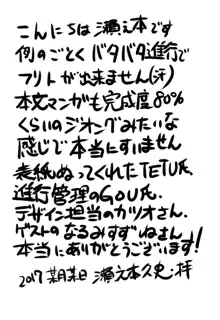 こんにちは瀬之本です
例のごとくバタバタ進行で
フリトが出来ません(汗)
本文マンガも完成度80%
くらいのジオングみたいな
感じで本当にすいません
表紙ぬってくれたTETU氏、
進行管理のGOU氏、
デザイン担当のカツオさん、
ゲストのなるみすずねさん
本当にありがとうございます!
2017 某月某日 瀬之本久史・拝